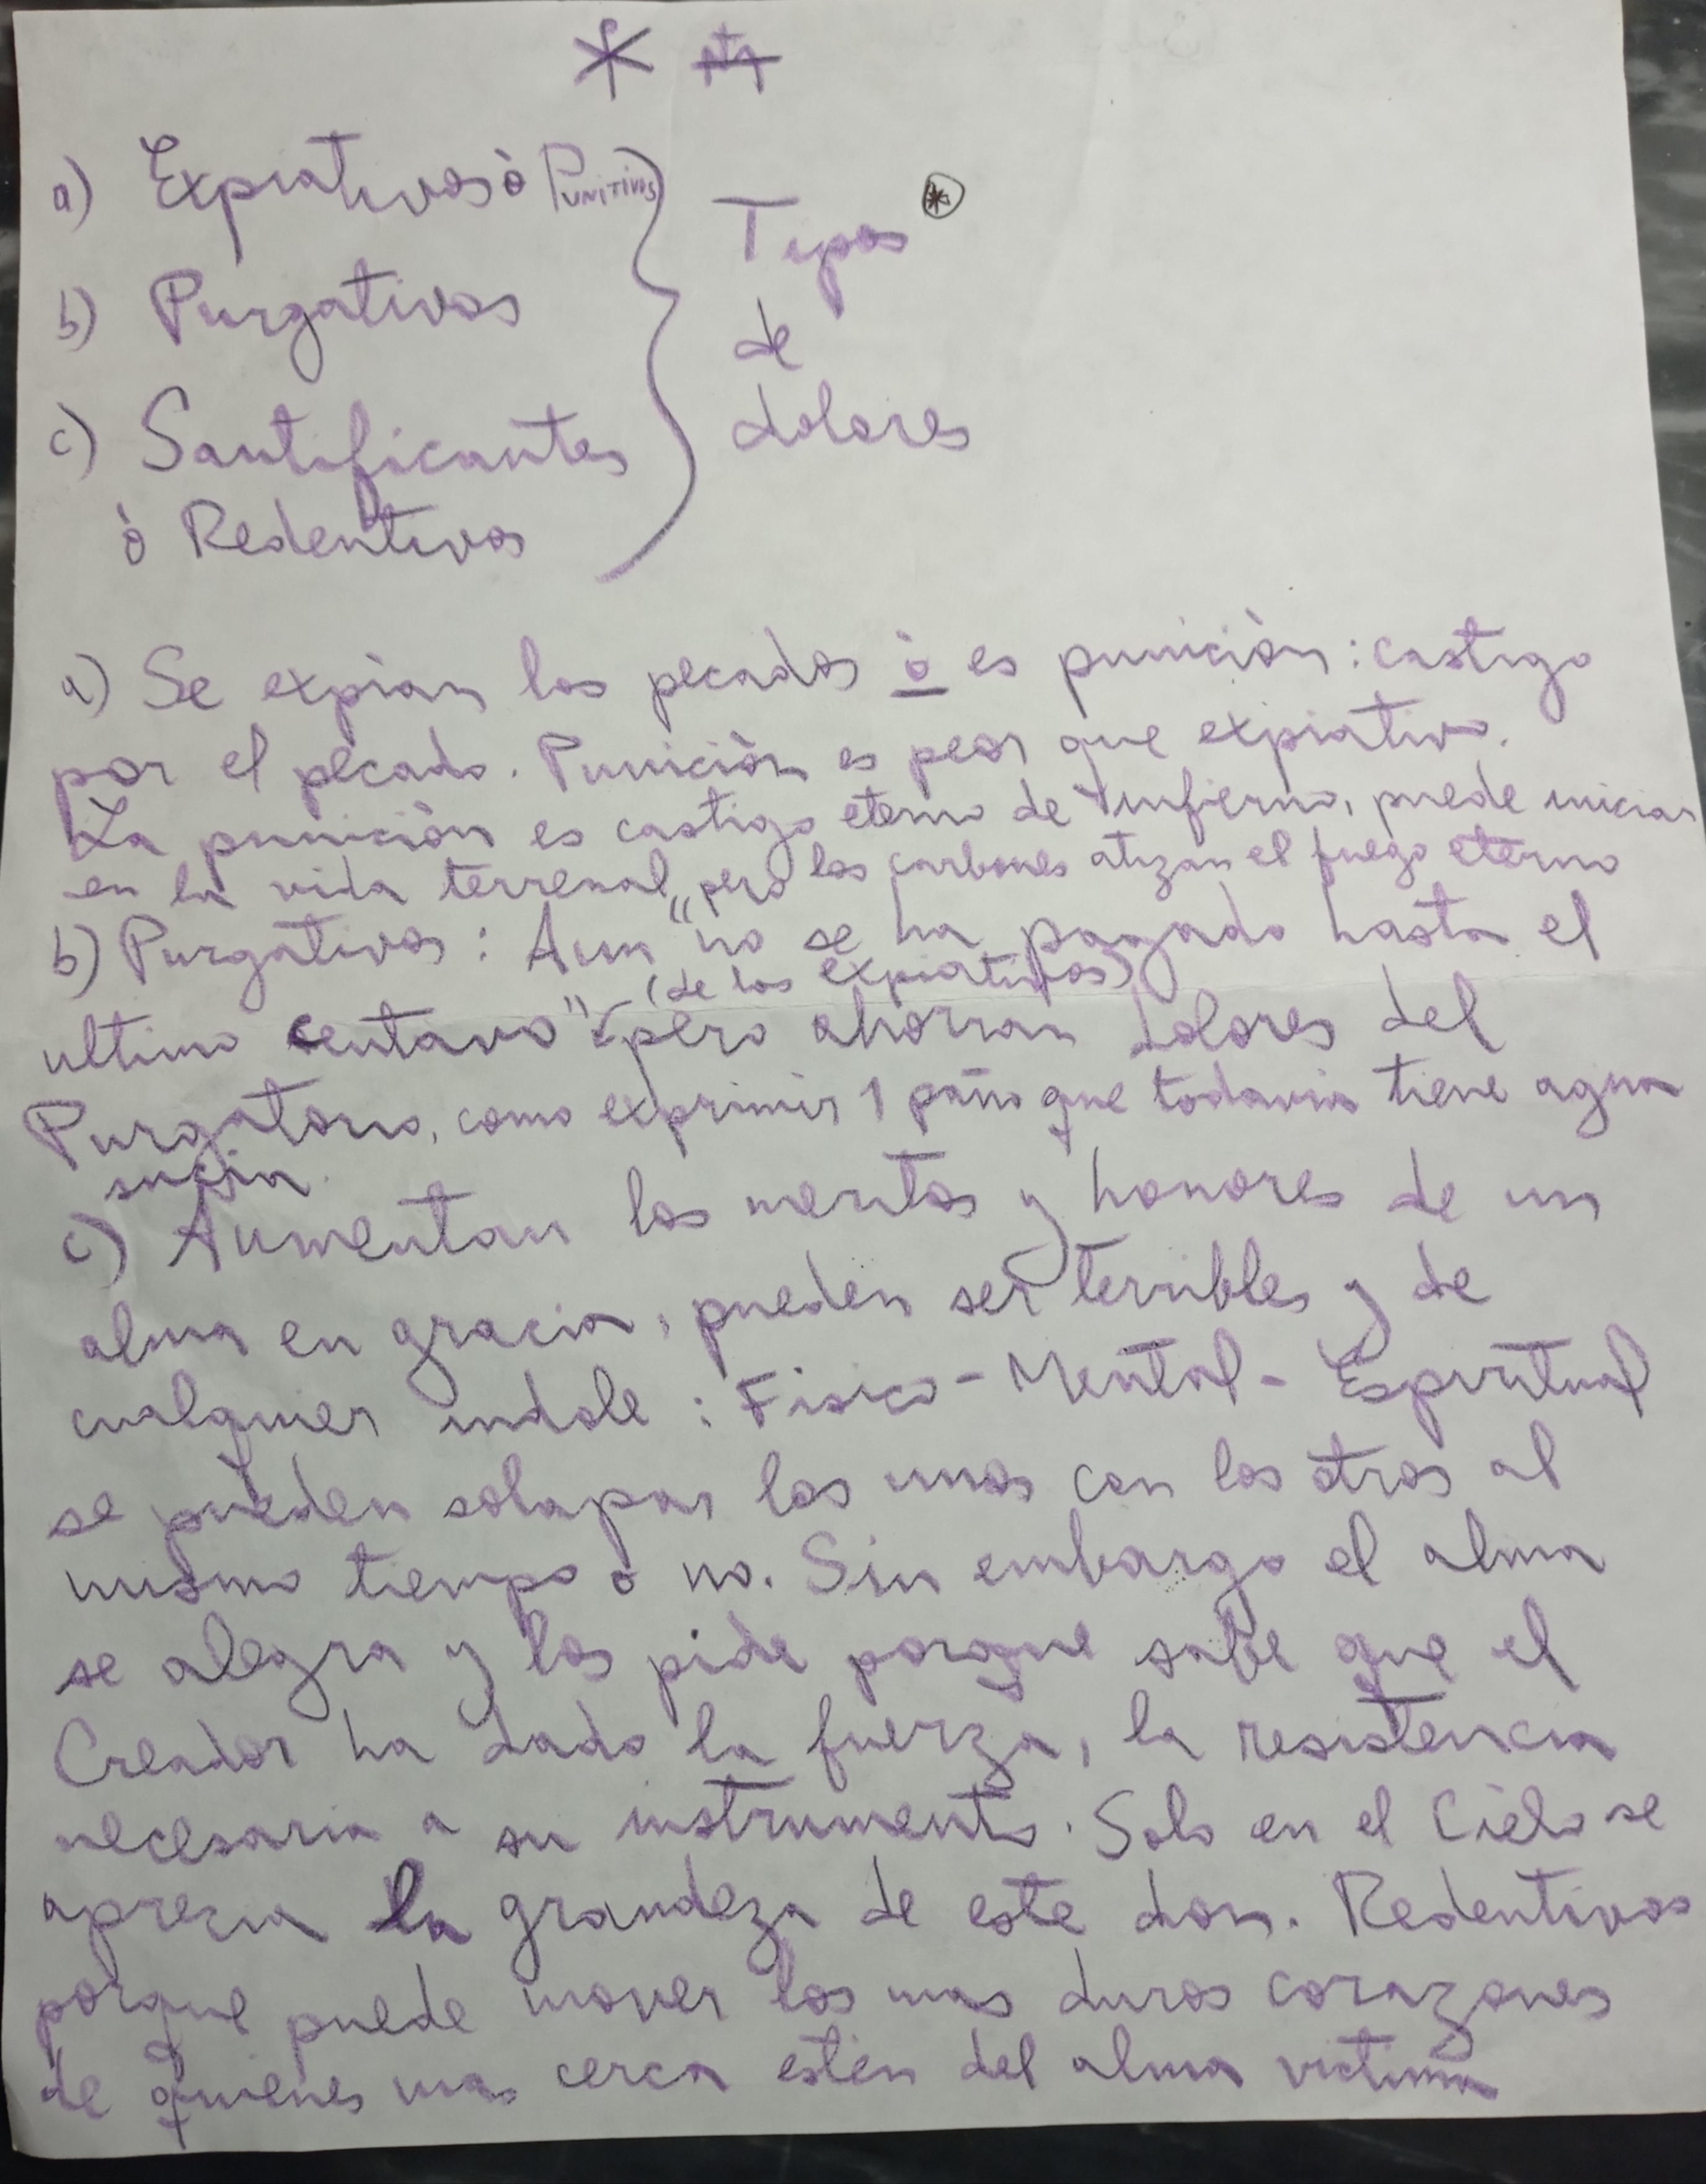 a) Expiativos ò Punitivos
Tipos
b) Purgativos
de
c) Santificantes
dolores
ò Redentivos
a) Se expìan los pecados ò es punición: castigo
por el pecado. Punición es peor que expiativo.
La punición es castigo eterno de infierno, puede iniciar
en la vida terrenal, pero los carbones atizan el fuego eterno
b) Purgativos: Aun "no se ha pagado hasta el
(de los expiativos)
ultimo centavo" pero ahorran dolores del
Purgatorio, como exprimir 1 paño que todavia tiene agua
sucia.
c) Aumentan los meritos y honores de un
alma en gracia, pueden ser terribles y de
cualquier indole: Fisico - Mental - Espiritual
se pueden solapar los unos con los otros al
mismo tiempo o no. Sin embargo el alma
se alegra y los pide porque sabe que el
Creador ha dado la fuerza, la resistencia
necesaria a su instrumento. Solo en el Cielo se
aprecia la grandeza de este don. Redentivos
porque puede mover los mas duros corazones
de quienes mas cerca estén del alma victima